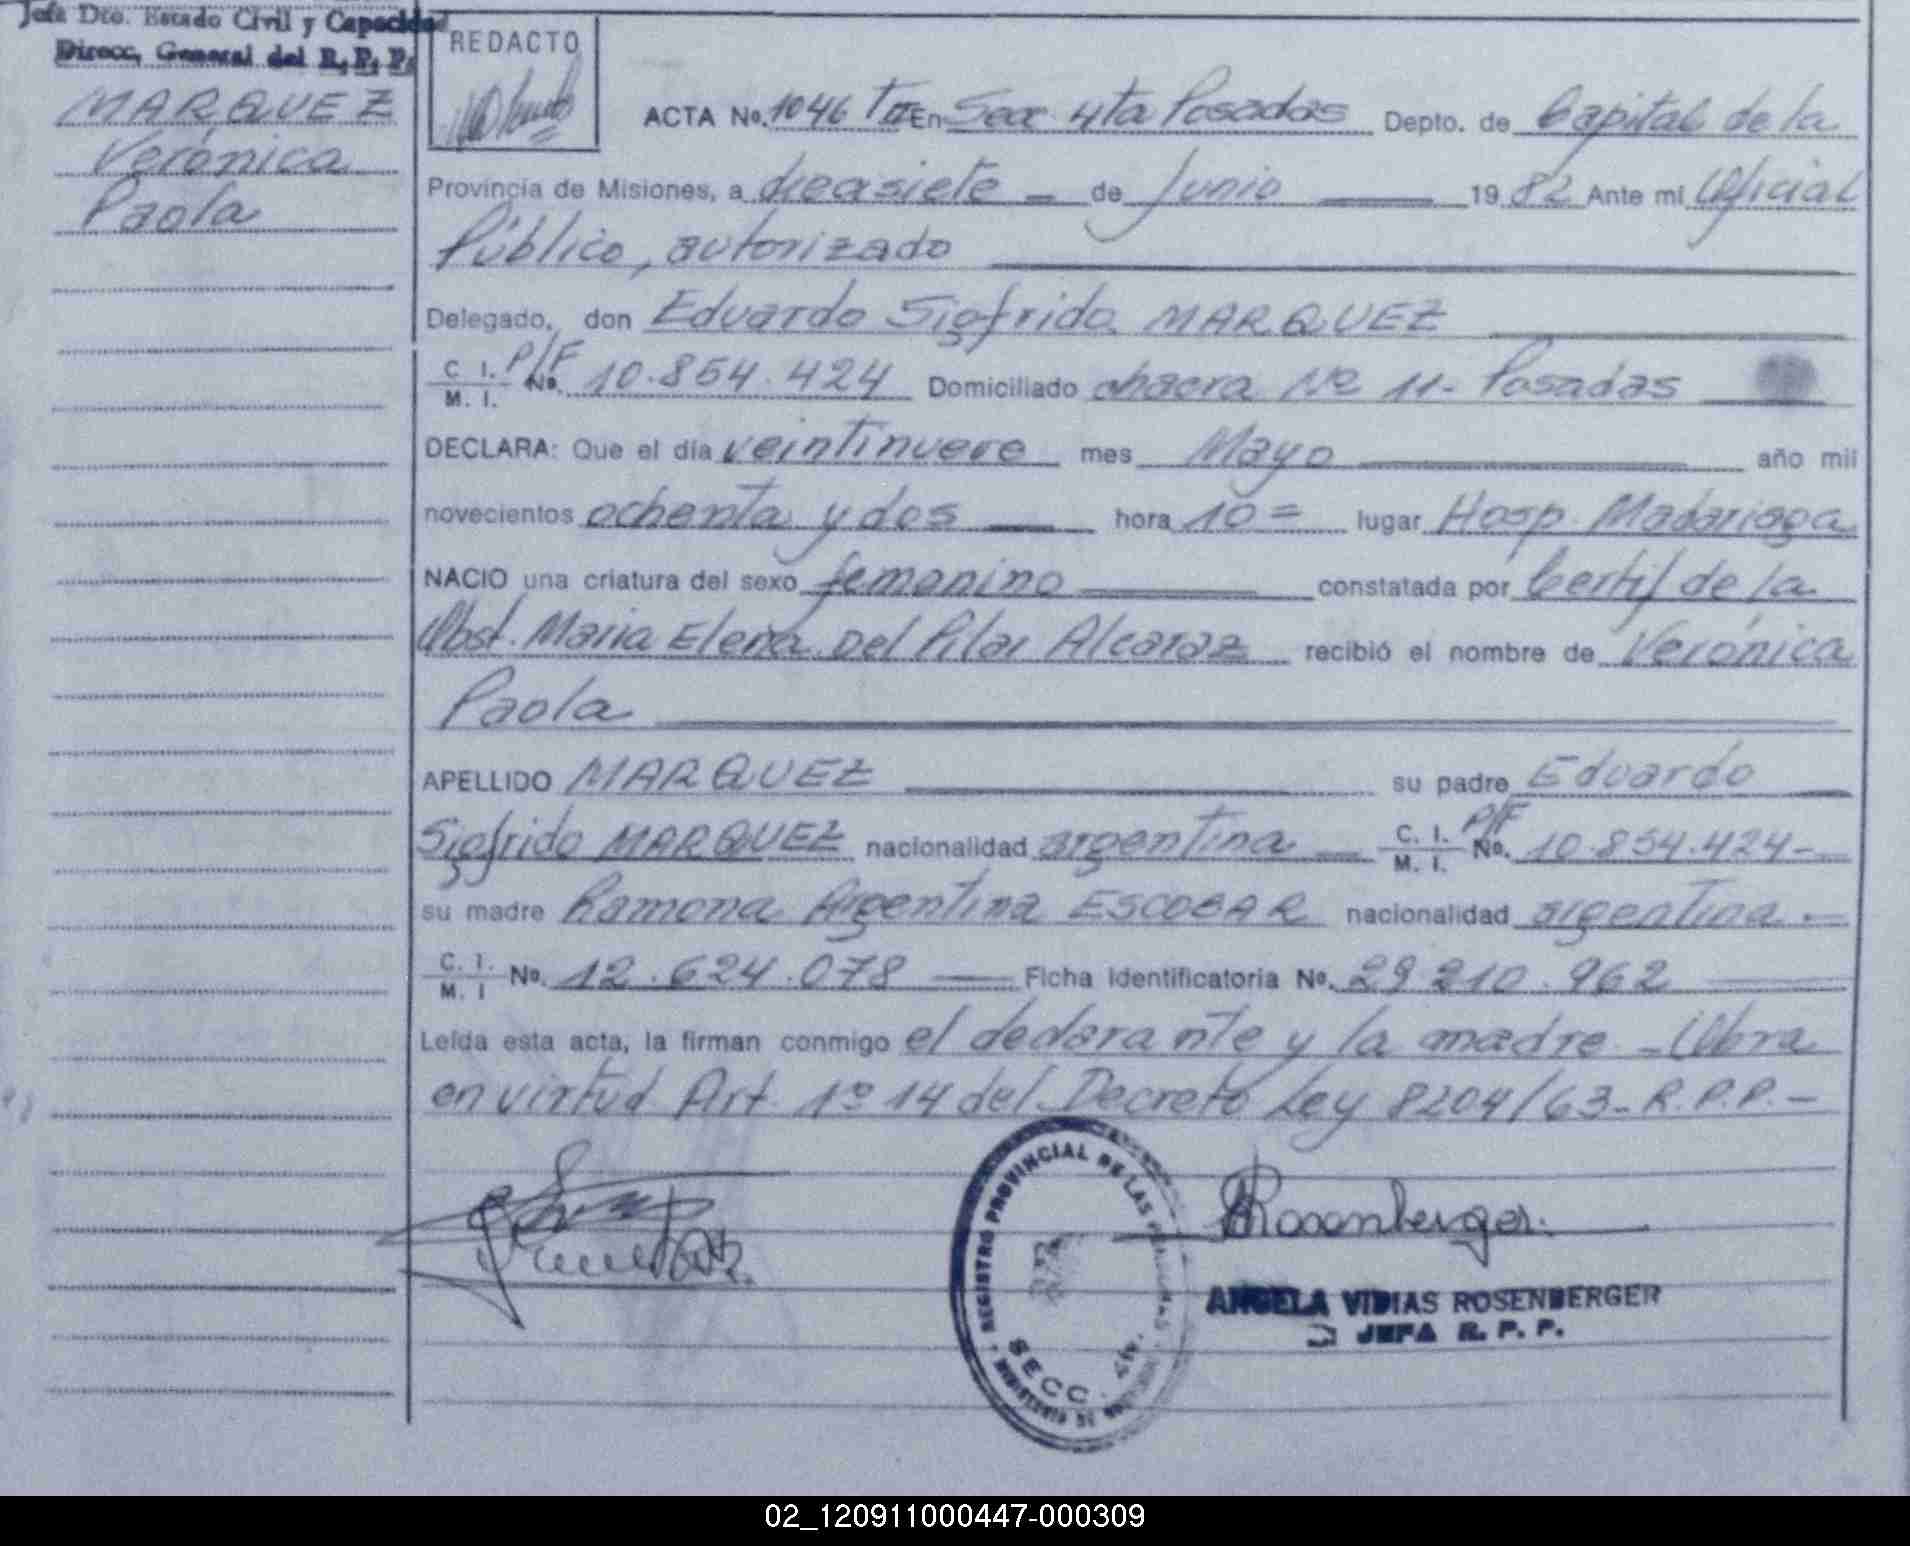 Jefa Dto. Estado Civil y Capacidad
Direcc, General del R. P. P.
MARQUEZ
Verónica
Paola
REDACTO
ACTA No. 1046 En Secc 4ta Posadas Depto. de Capital de la
Provincia de Misiones, a diecisiete de Junio 1982 Ante mi Oficial
Público, autorizado
Delegado, don Eduardo Sigfrido MARQUEZ
C. I. M. I. P/F No. 10.854.424 Domiciliado chacra Nº 11- Posadas
DECLARA: Que el día veintinueve mes Mayo año mil
novecientos ochenta y dos hora 10= lugar Hosp. Madariaga
NACIO una criatura del sexo femenino constatada por Certif de la
Obst. Maria Elena Del Pilar Alcaraz recibió el nombre de Verónica
Paola
APELLIDO MARQUEZ su padre Eduardo
Sigfrido MARQUEZ nacionalidad argentina C. I. M. I. P/F No. 10.854.424-
su madre Ramona Argentina ESCOBAR nacionalidad argentina.-
C. I. M. I No. 12.624.078 Ficha Identificatoria No. 29 210.962
Leída esta acta, la firman conmigo el declarante y la madre - Obra
en virtud Art. 1º 14 del Decreto Ley 8204/63- R.P.P.-
REGISTRO PROVINCIAL DE LAS PERSONAS
SECC. 4ta.
MINISTERIO DE
Rosenberger.
ANGELA VIDIAS ROSENBERGER
JEFA R. P. P.
02_120911000447-000309